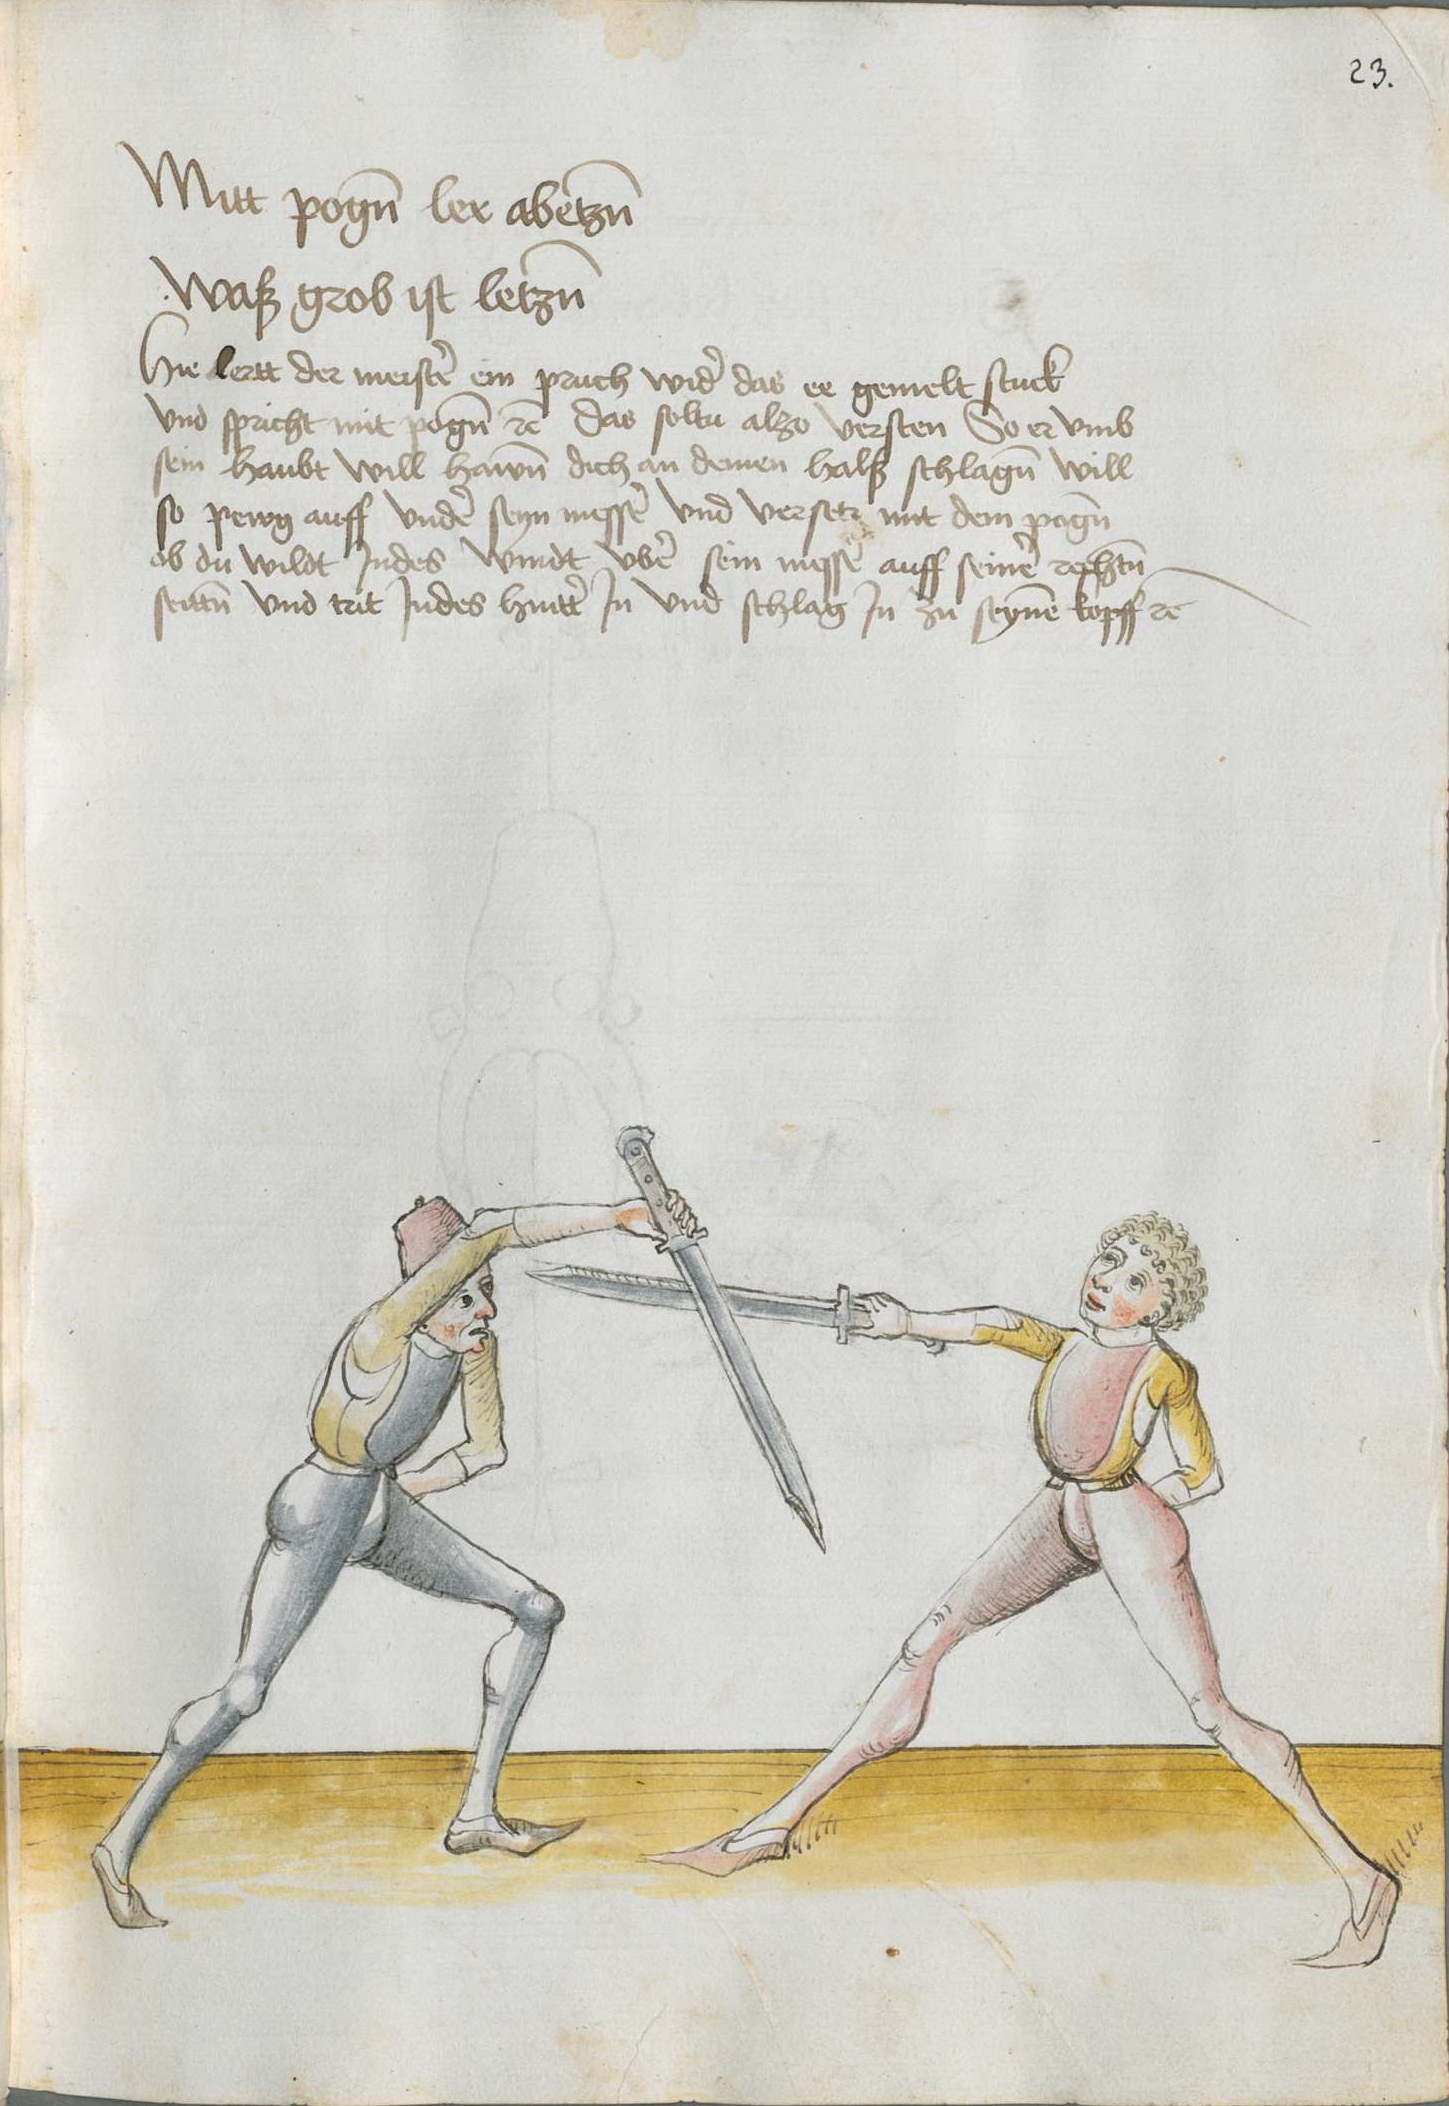 23.
Mitt pogn̄ ler abetzn̄
Waß grob ist letzn̄
Hie lertt der meist̄ ein pruch wid̄ das ee gemelt stuck
vnd spricht mit pogn̄ ꝛc̄ das soltu alzo versten So er vmb
sein haubt will hawn̄ dich an deinen halß schlagn̄ will
so pewg auff vnd̄ seyn mess̄ vnd versetz mit dem pogn̄
ob du wildt Indes windt vb̄ sein mess̄ auff sein̄ rechtn̄
seittn̄ vnd trit Indes hintt̄ In vnd schlag In zu seynē kopff ꝛc̄